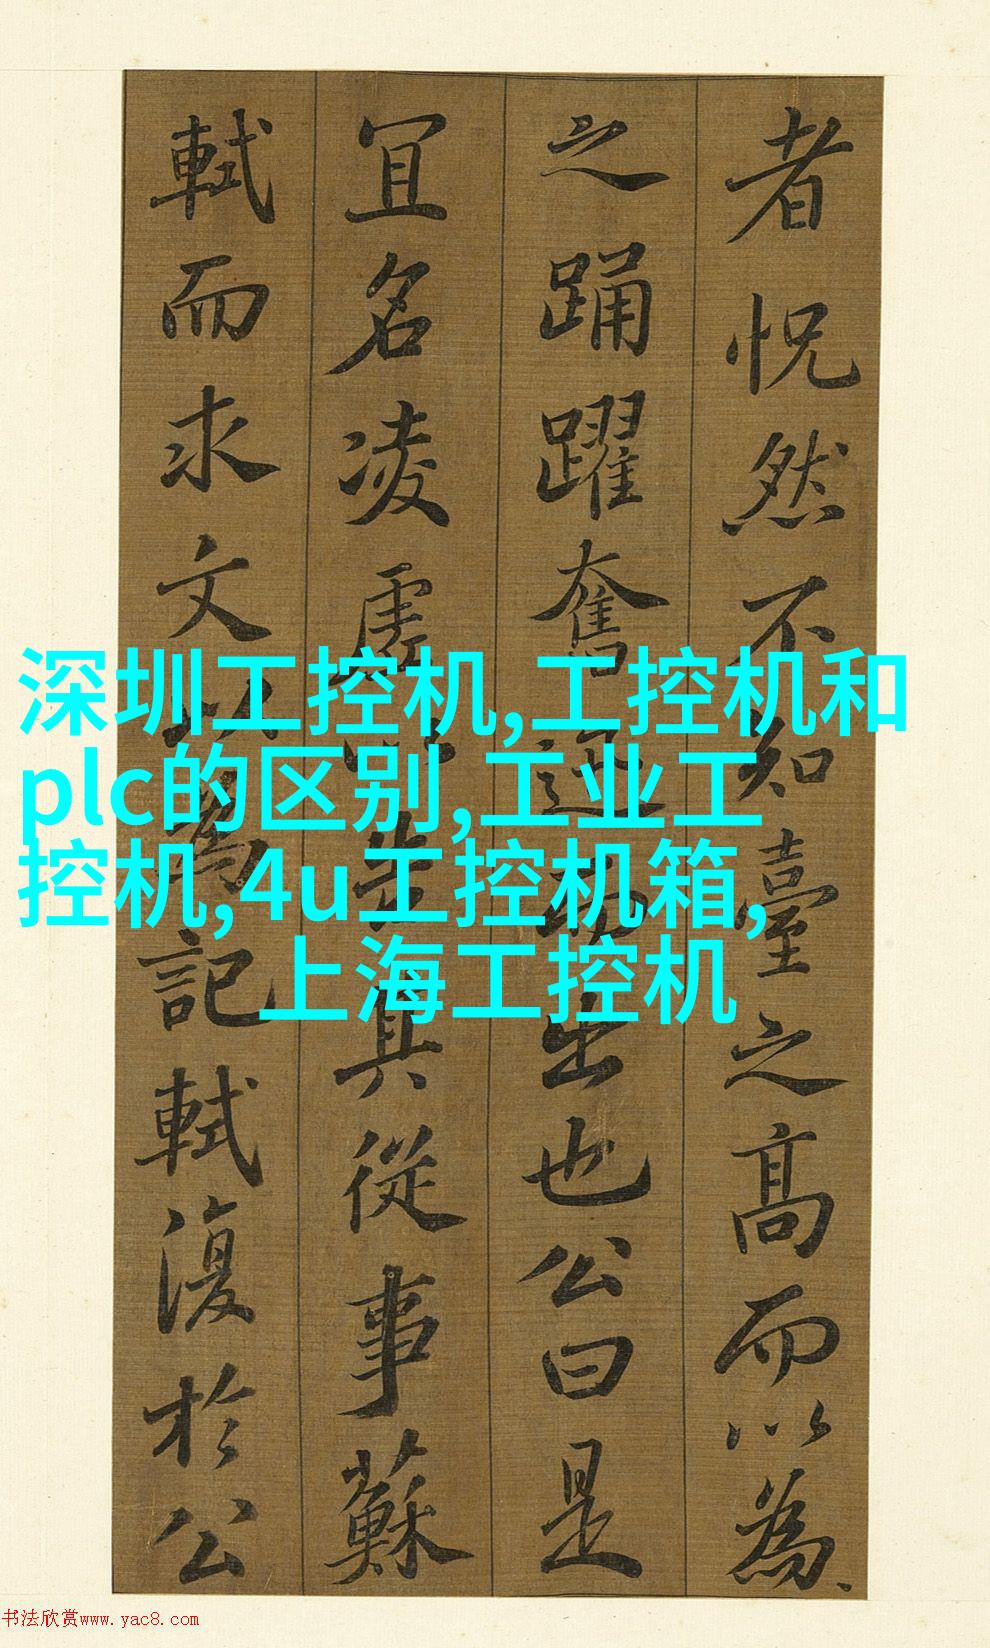 者怳然不知臺之髙而以為
之踊躍奮迅而出也公曰是
冝名凌虛以告其從事蘇
軾而求文以為記軾復於公
深圳工控机,工控机和
plc的区别,工业工
控机,4u工控机箱,
上海工控机
书法欣赏www.yac8.com